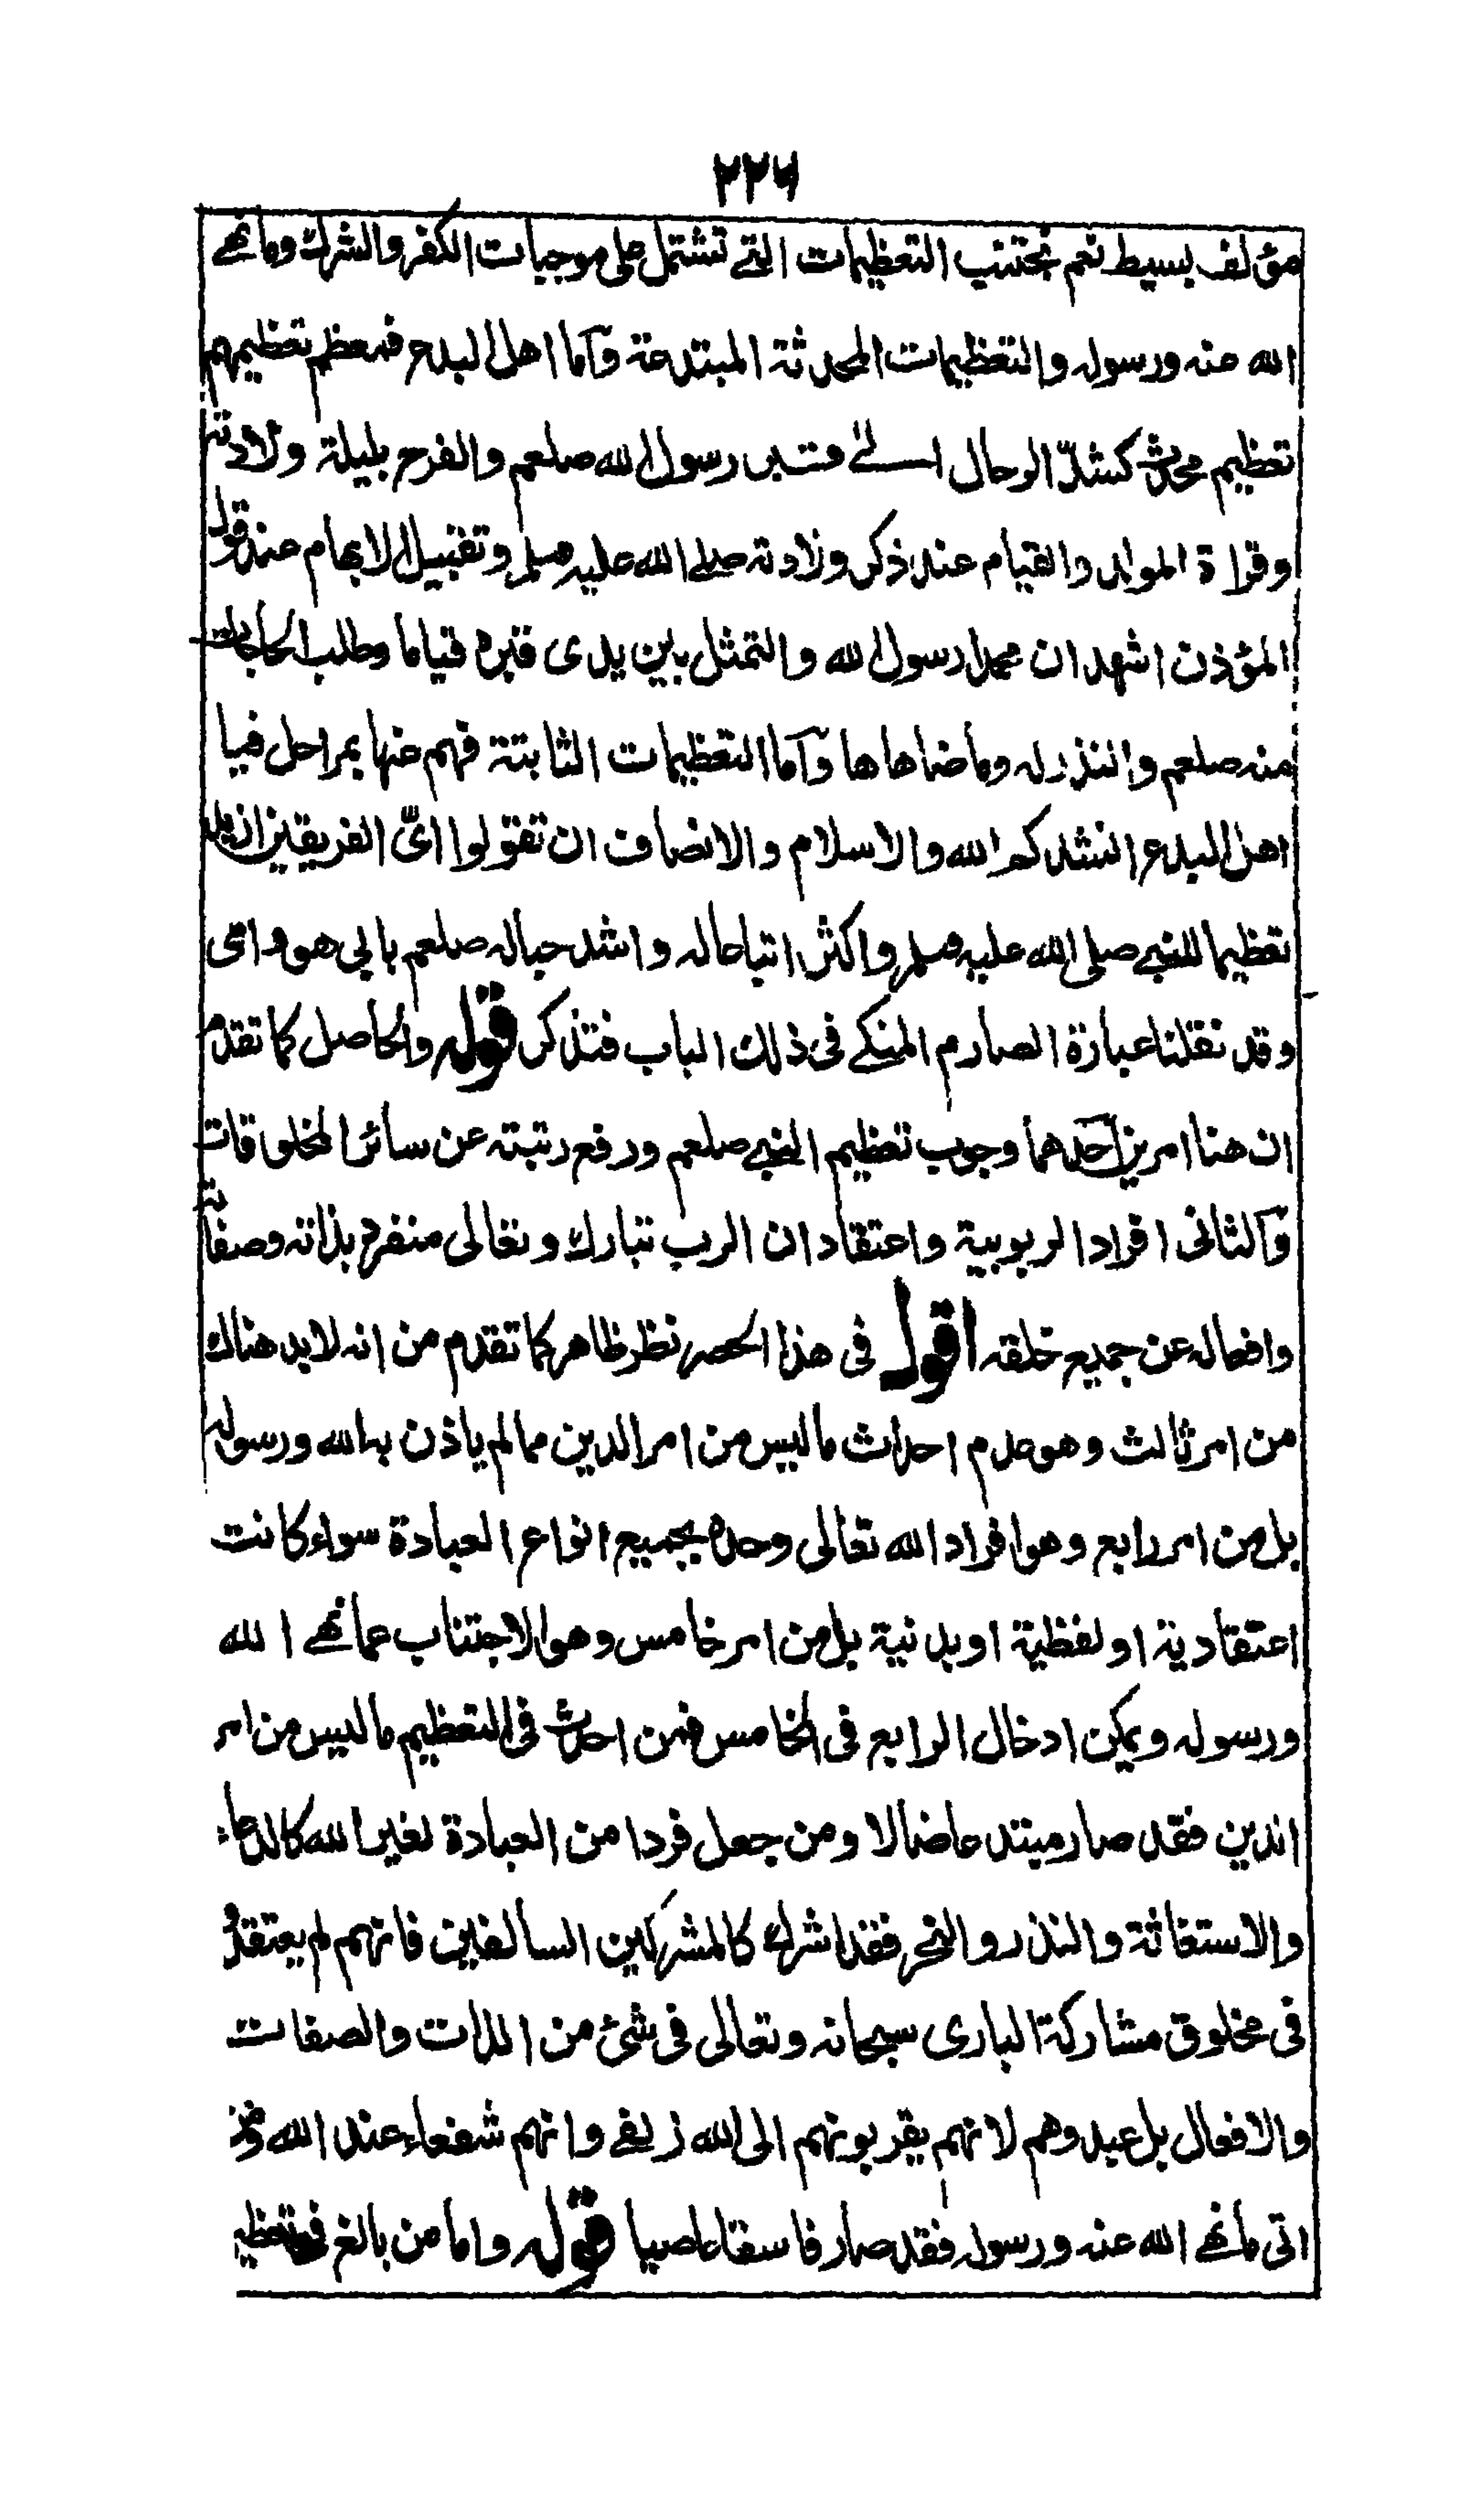 ٢٢٦
مؤلف بسيط نعم نجتنب التعظيمات التے تشتمل على موجبات الكفر والشرك وما نهے
الله عنه ورسوله والتعظيمات المحدثة المبتدعة وآما اهل البدع فمعظم تعظيمهم
تعظيم محدث كشدّ الرحال الے قبر رسول الله صلعم والفرح بليلة ولادته
وقراة المولد والقيام عند ذكر ولادته صلى الله عليه وسلم وتقبيل الابهام عند قول
المؤذن اشهد ان محمدا رسول الله والتمثل بين يدى قبره قياما وطلب الحاجات
منه صلعم والنذر له وما ضاهاها وآما التعظيمات الثابتة فهم عنها بمراحل فيا
اهل البدع انشدكم الله والاسلام والانصاف ان تقولوا اىّ الفريقين اشد
تعظيما للنبے صلى الله عليه وسلم واكثر اتباعا له واشد حبا له صلعم بابي هو وامى
وقد نقلنا عبارة الصارم المنكے فى ذلك الباب فتذكر قوله والحاصل كما تقدم
ان هنا امرين احدهما وجوب تعظيم النبے صلعم ورفع رتبته عن سائر المخلوقات
وآلثانى افراد الربوبية واعتقاد ان الرب تبارك وتعالى منفرد بذاته وصفاته
وافعاله عن جميع خلقه اقول فى هذا الحصر نظر ظاهر كما تقدم من انه لابد هناك
من امر ثالث وهو عدم احداث ما ليس من امر الدين مما لم ياذن به الله ورسوله
بل من امر رابع وهو افراد الله تعالى وحده بجميع انواع العبادة سواء كانت
اعتقادية او لفظية او بدنية بل من امر خامس وهو الاجتناب عما نهے الله
ورسوله ويمكن ادخال الرابع فى الخامس فمن احدث فى التعظيم ما ليس من امر
الدين فقد صار مبتدعا ضالا ومن جعل فردا من العبادة لغير الله كالدعاء
والاستغاثة والنذر والنحر فقد اشرك كالمشركين السالفين فانهم لم يعتقدوا
فى مخلوق مشاركة البارى سبحانه وتعالى فى شئ من الذات والصفات
والافعال بل عبدوهم لانهم يقربونهم الى الله زلفے وانهم شفعاء عند الله ومن
اتى ما نهے الله عنه ورسوله فقد صار فاسقا عاصيا قوله واما من بالغ فى تعظيمه